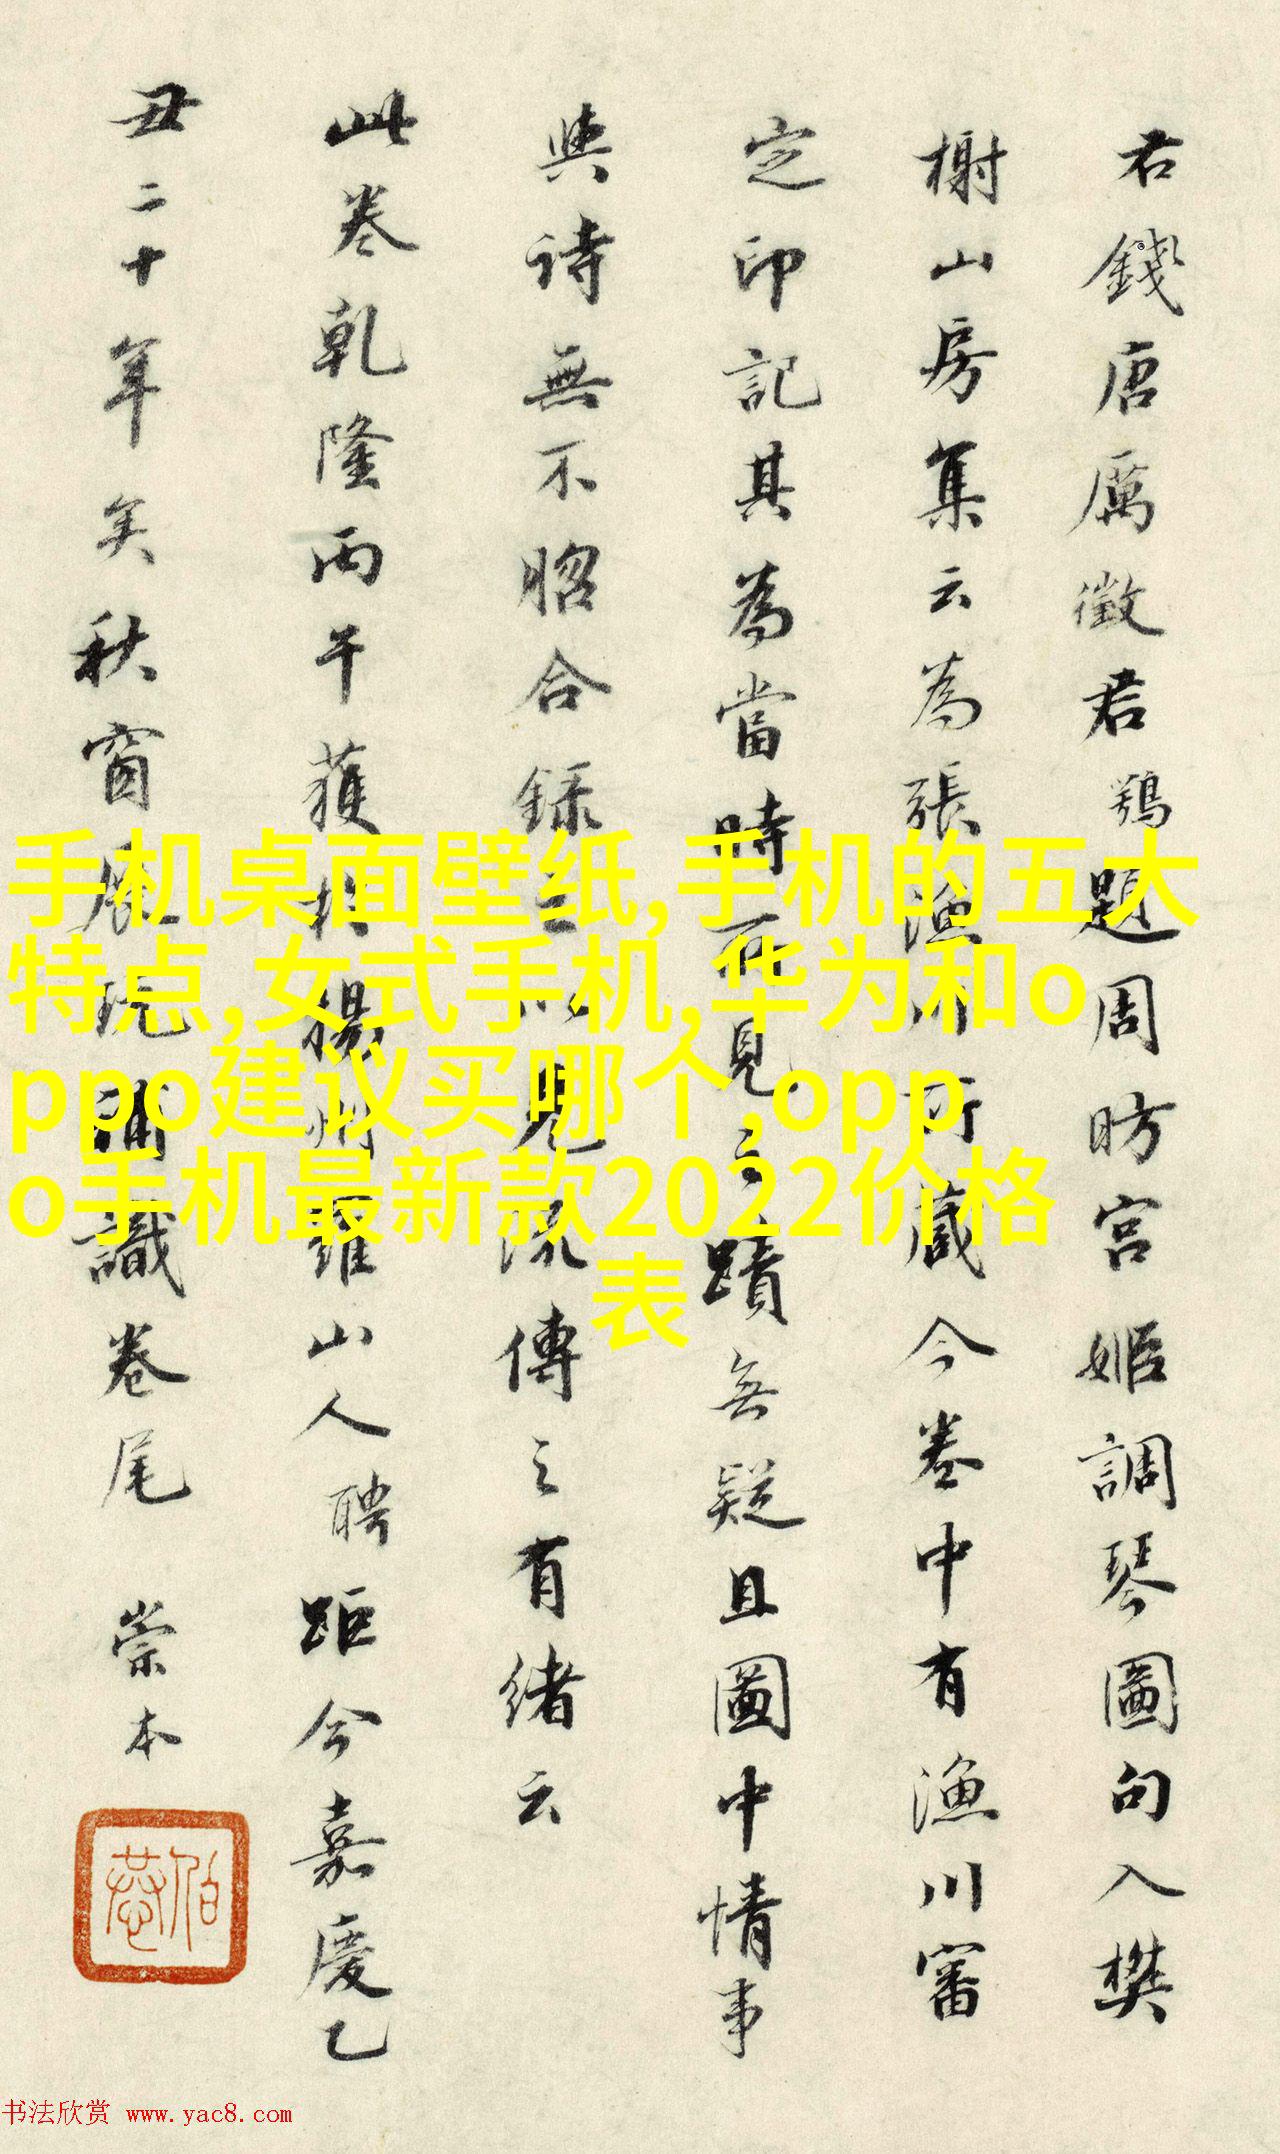 君錢唐厲徵君鶚題周昉宫姬調琴圖句入樊
榭山房集云為張漁川所藏今卷中有漁川審
定印記其為當時所見之蹟無疑且圖中情事
與詩無不昭合録之以見流傳之有緒云
此卷乾隆丙午獲於揚州羅山人聘距今嘉慶乙
丑二十年矣秋窗展玩補識卷尾 崇本
手机桌面壁纸,手机的五大
特点,女式手机,华为和o
ppo建议买哪个,opp
o手机最新款2022价格
表
书法欣赏 www.yac8.com